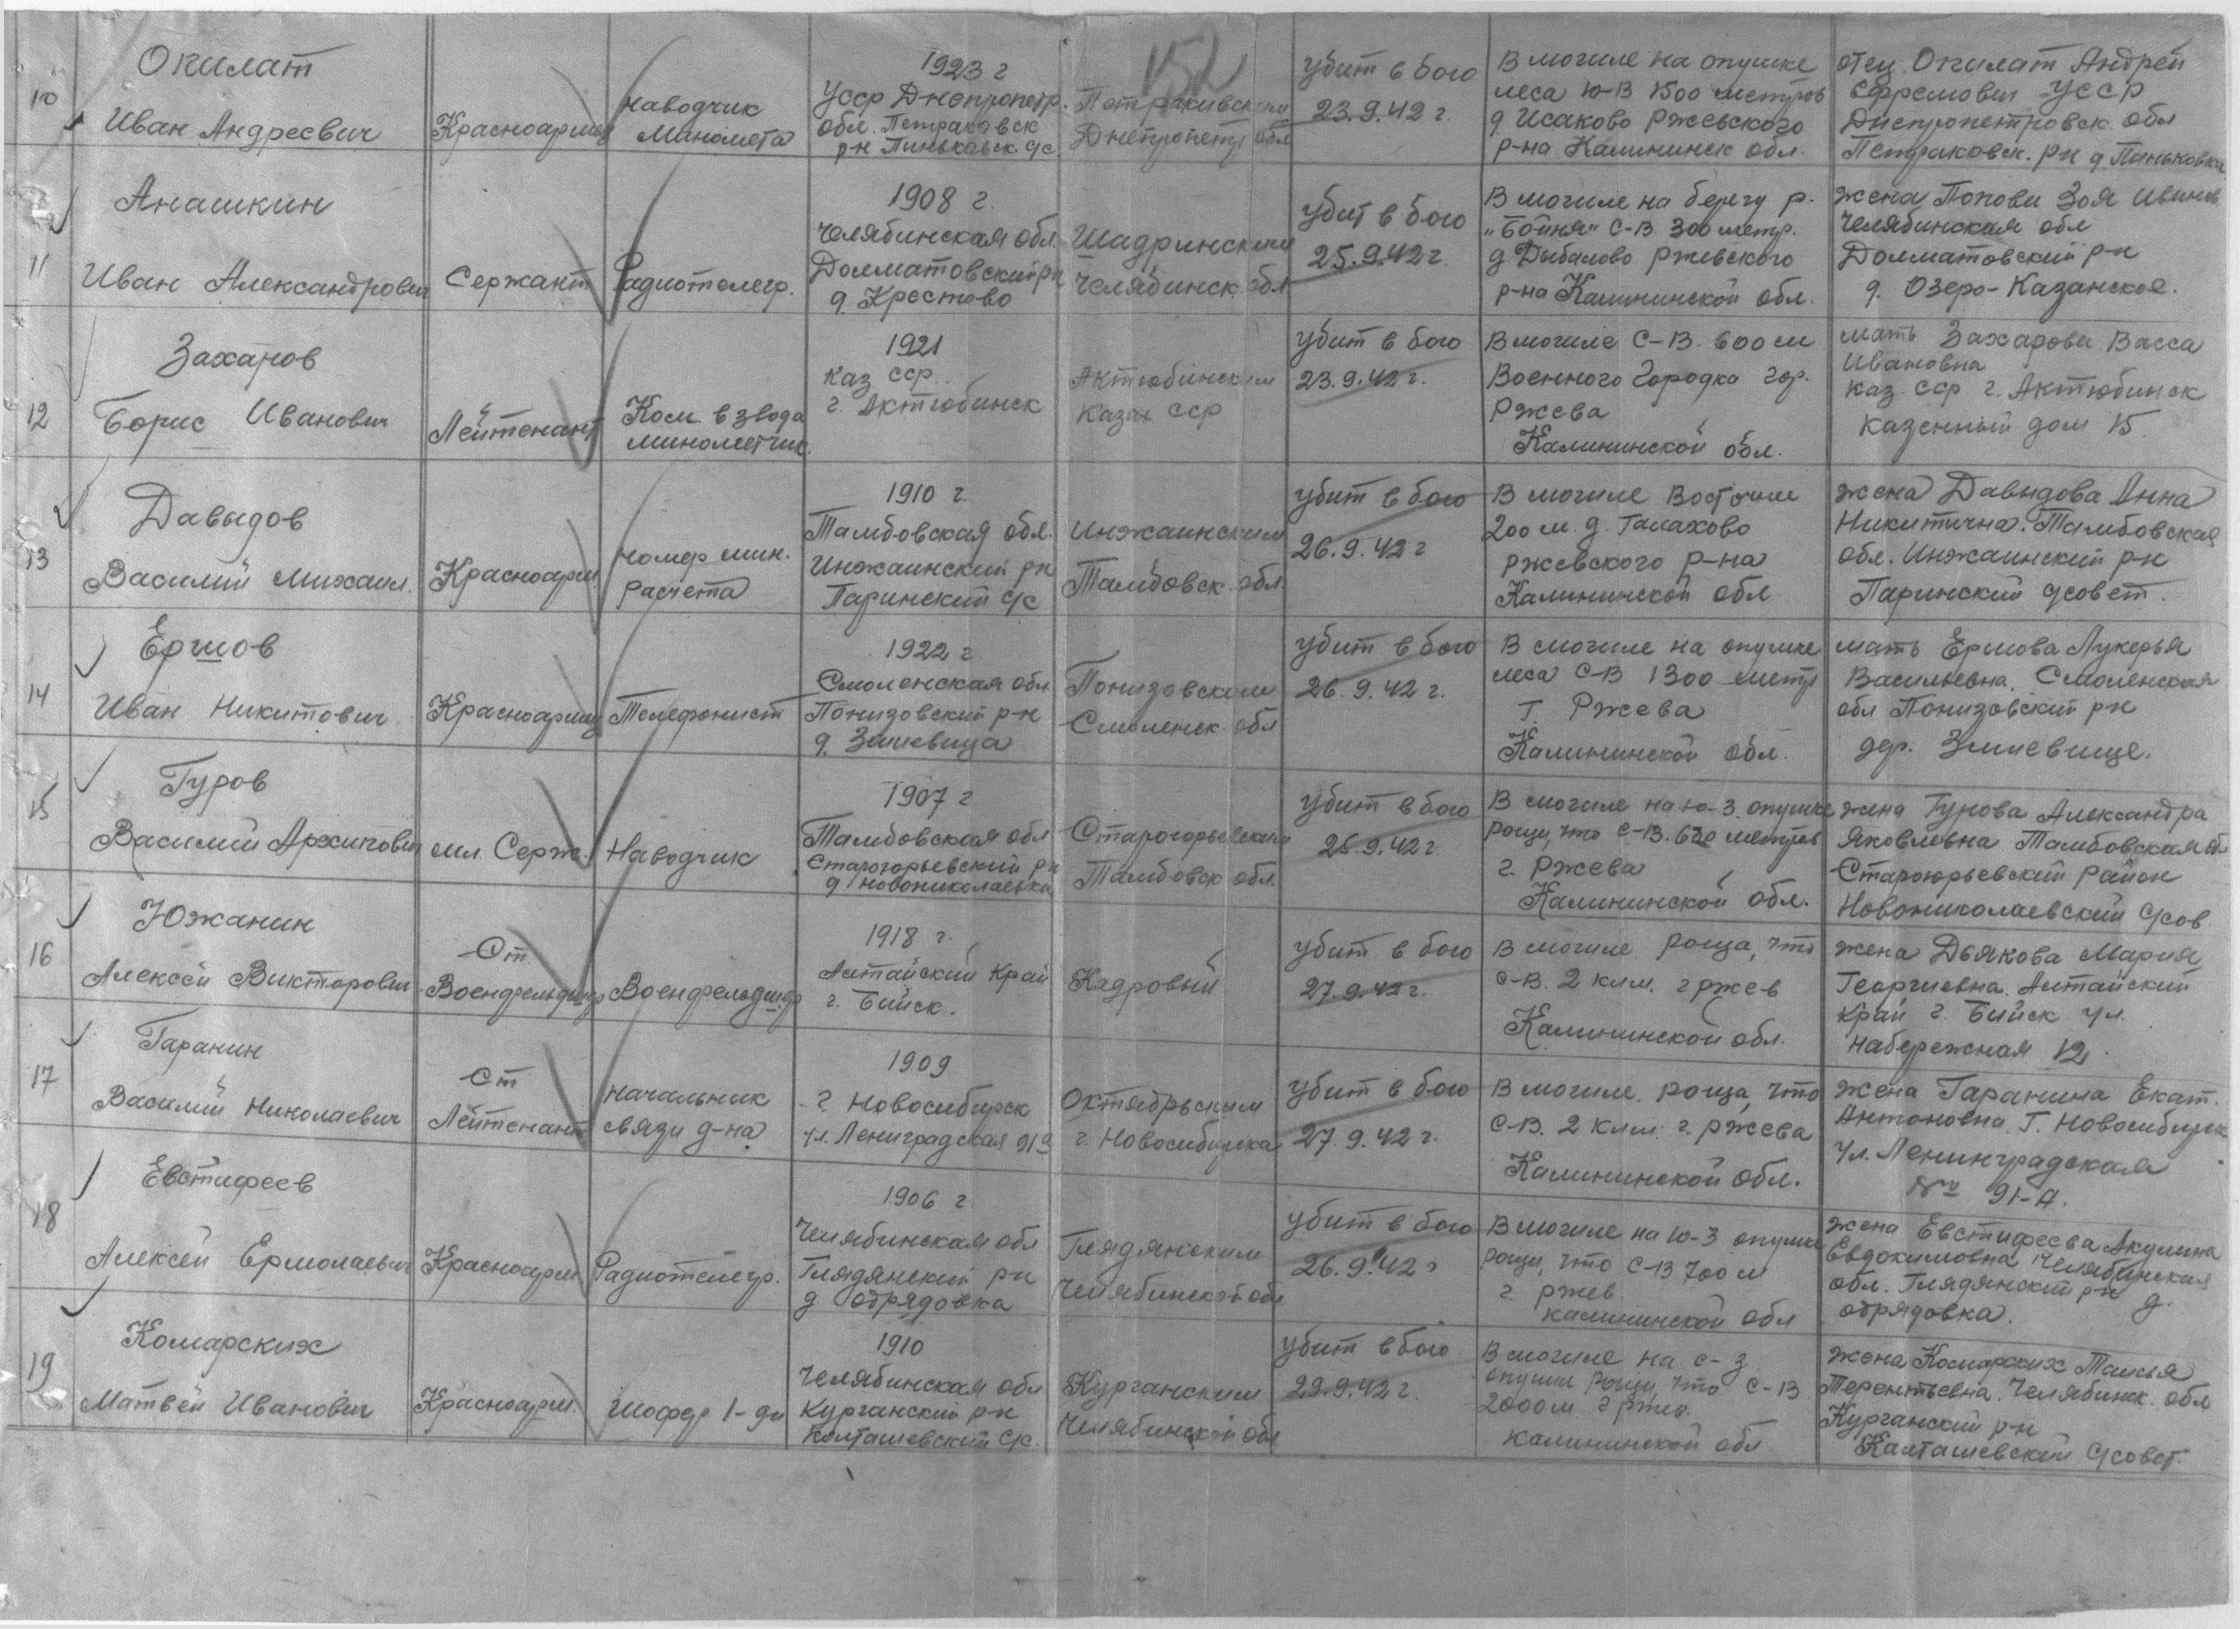 152
10
Окилат
Иван Андреевич
Красноармеец
наводчик
миномета
1923 г
УССР Днепропетр.
обл. Петраковск
р-н Пиньковск. с/с
Петраковским
Днепропетр обл
убит в бою
23.9.42 г.
В могиле на опушке
леса Ю-В 1500 метров
д Исаково Ржевского
р-на Калининск обл.
отец Окилат Андрей
Ефремович УССР
Днепропетровск обл
Петраковск. р-н д Пиньковка
11
Анашкин
Иван Александрович
Сержант
Радиотелегр.
1908 г.
Челябинская обл.
Долматовский р-н
д. Крестово
Шадринским
Челябинск. обл
убит в бою
25.9.42 г.
В могиле на берегу р.
„Бойня" С-В 300 метр.
д Дыбалово Ржевского
р-на Калининской обл.
жена Попова Зоя Иванов
Челябинская обл
Долматовский р-н
д. Озеро-Казанское.
12
Захаров
Борис Иванович
Лейтенант
Ком взвода
минометчик.
1921
Каз ССР.
г. Актюбинск
Актюбинским
Казах ССР
убит в бою
23.9.42 г.
В могиле С-В 600 м
Военного Городка гор.
Ржева
Калининской обл.
мать Захарова Васса
Ивановна
Каз. ССР г. Актюбинск
Казенный дом 15.
13
Давыдов
Василий Михаил.
Красноарм.
номер мин.
расчета
1910 г.
Тамбовская обл.
Инжаинский р-н
Паринский с/с
Инжаинским
Тамбовск. обл.
убит в бою
26.9.42 г
В могиле Восточнее
200 м. д. Галахово
Ржевского р-на
Калининской обл
жена Давыдова Анна
Никитична. Тамбовская
обл. Инжаинский р-н
Паринский с/совет.
14
Ершов
Иван Никитович
Красноармеец
Телефонист
1922 г
Смоленская обл
Понизовский р-н
д. Змиевица
Понизовским
Смоленск. обл
убит в бою
26.9.42 г.
В могиле на опушке
леса С-В 1300 метр
Г. Ржева
Калининской обл.
мать Ершова Лукерья
Васильевна. Смоленская
обл Понизовский р-н
дер. Змиевище.
15
Гуров
Василий Архипович
мл. Серж.
Наводчик
1907 г
Тамбовская обл
Старогорьевский р-н
д Новониколаевка
Старогорьевским
Тамбовск обл.
убит в бою
26.9.42 г.
В могиле на Ю-З. опушке
рощи, что С-В. 600 метров
г. Ржева
Калининской обл.
жена Гурова Александра
Яковлевна Тамбовская обл
Староюрьевский район
Новониколаевский с/сов
16
Южанин
Алексей Викторович
Ст
Военфельдшер
Военфельдшер
1918 г.
Алтайский Край
г. Бийск.
Кадровый
убит в бою
27.9.42 г.
В могиле роща, что
С-В. 2 клм. г Ржев
Калининской обл.
жена Дьякова Мария
Георгиевна. Алтайский
Край г. Бийск ул.
Набережная 12.
17
Гаранин
Василий Николаевич
Ст
Лейтенант
Начальник
связи д-на
1909
г Новосибирск
ул. Ленинградская 91а
Октябрьским
г. Новосибирска
убит в бою
27.9.42 г.
В могиле. роща, что
С-В. 2 клм. г. Ржева
Калининской обл.
жена Гаранина Екат.
Антоновна. Г. Новосибирск
ул. Ленинградская
№ 91-А.
18
Евстифеев
Алексей Ермолаевич
Красноарм.
Радиотелегр.
1906 г
Челябинская обл
Глядянский р-н
д обрядовка
Глядянским
Челябинской обл
убит в бою
26.9.42 г
В могиле на Ю-З опушке
рощи, что С-В 700 м
г Ржев.
Калининской обл
жена Евстифеева Акулина
Евдокимовна Челябинская
обл. Глядянский р-н д.
обрядовка.
19
Комарских
Матвей Иванович
Красноарм.
Шофер 1-ди
1910
Челябинская обл
Курганский р-н
Колташевский с/с.
Курганским
Челябинской обл
убит в бою
29.9.42 г.
В могиле на С-З
опушки рощи, что С-В
2000 м г Ржев.
Калининской обл
жена Комарских Таисья
Терентьевна. Челябинск. обл
Курганский р-н
Калташевский с/совет.